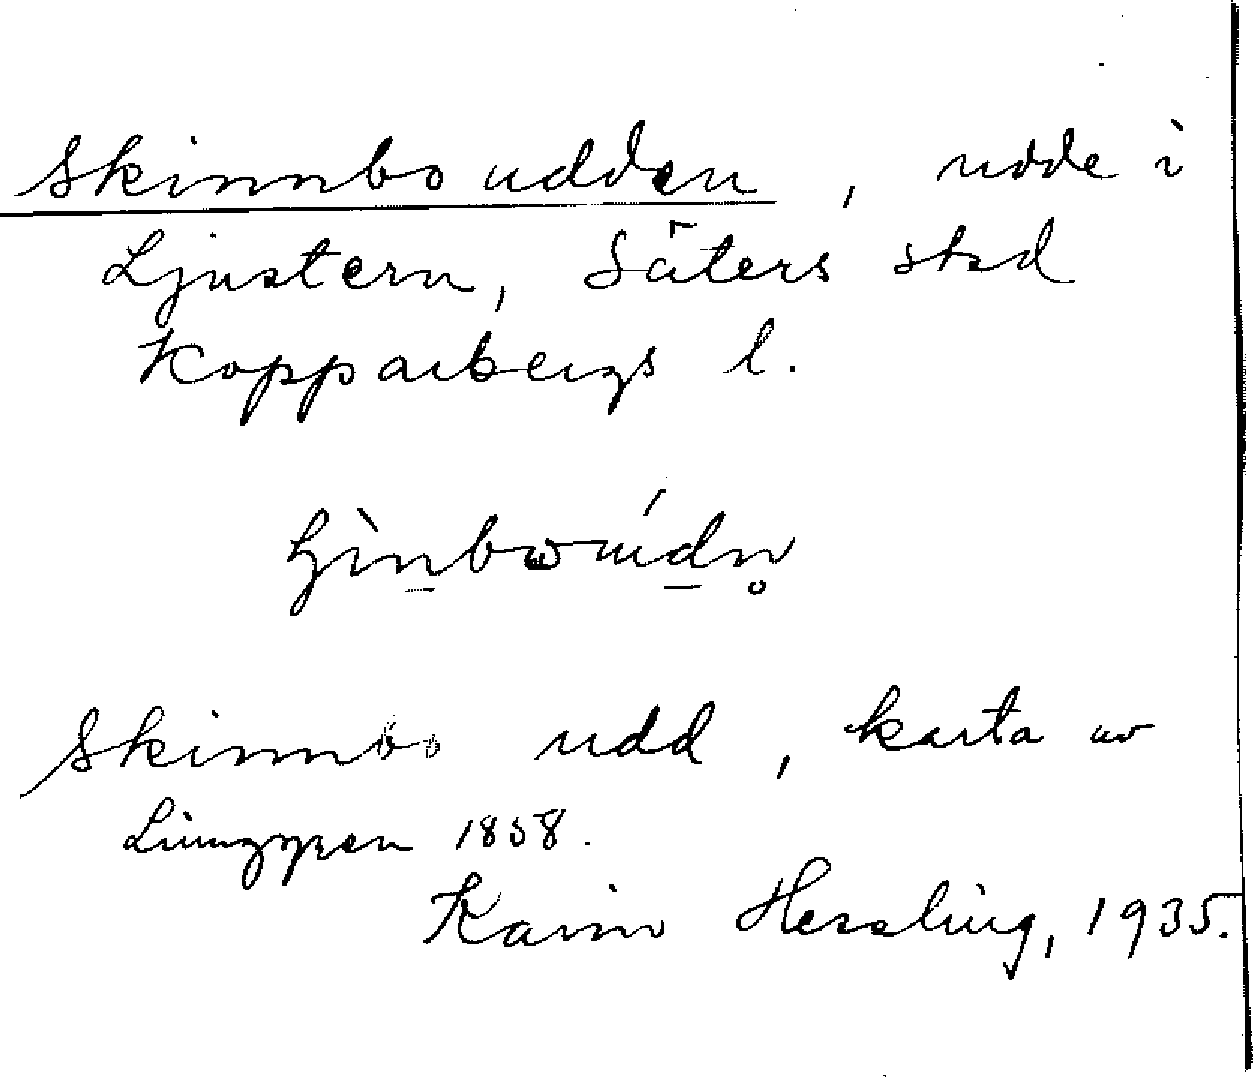 Skinnboudden, udde i
Ljustern, Säters stad
Kopparbergs l.
Skinnbo udd, karta av
Ljunggren 1858.
Karin Hessling, 1935.